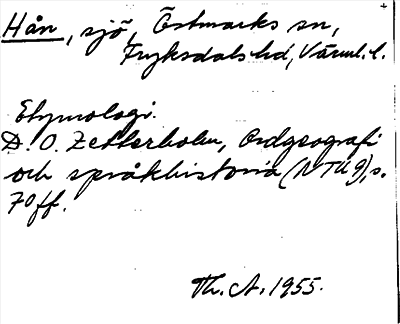 Hån, sjö, Östmarks sn,
Fryksdals hd, Värml. l.
Etymologi.
D. O. Zetterholm, Ordgeografi
och språkhistoria (NTU 9), s.
70 ff.
Th. A. 1955.